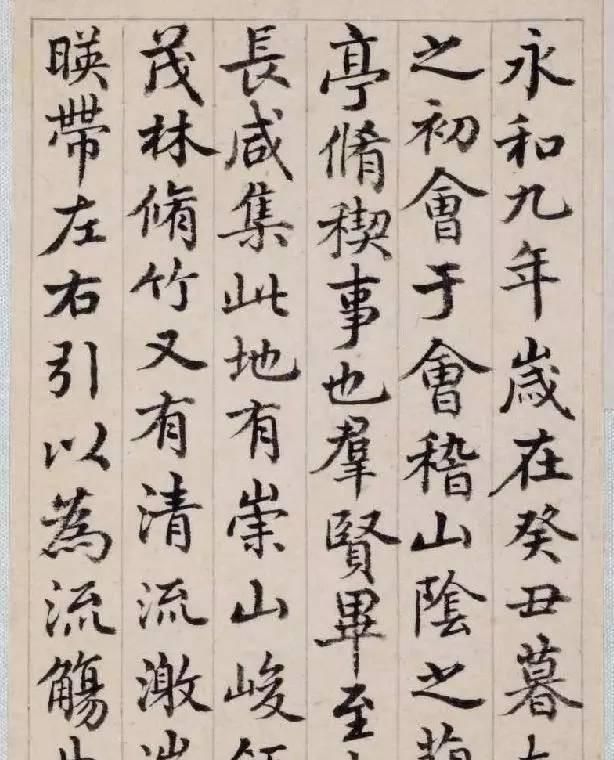 永和九年歲在癸丑暮
之初會于會稽山陰之
亭脩稧事也羣賢畢至
長咸集此地有崇山峻
茂林脩竹又有清流激
暎帶左右引以為流觴